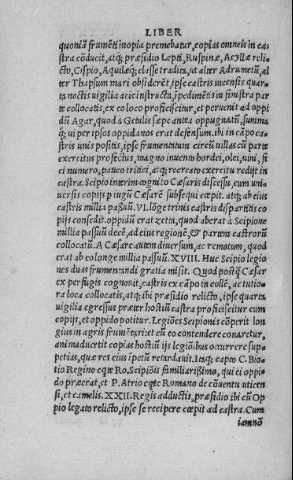 LIBER
quoniã frumẽti inopia premebatur, copias omneis in ca
stra cõducit, atq; præsidio Lepti, Ruspinæ, Acyllæ reli
cto, Cispio, Aquilæq; classe tradita, ut alter Adrumetũ, al
ter Thapsum mari obsiderẽt, ipse castris incensis quar
ta noctis uigilia acie instructa, ipedimẽtis in sinistra par
te collocatis, ex eo loco proficiscitur, et peruenit ad oppi
dũ Agar, quod à Getulis sæpe antea oppugnatũ, summa
q; ui per ipsos oppidanos erat defensum. ibi in cãpo ca
stris unis positis, ipse frumentatum circũ uillas cũ parte
exercitus profectus, magno inuento hordei, olei, uini, fi
ci numero, pauco tritici, atq; recreato exercitu redijt in
castra. Scipio interim cognito Cæsaris discessu, cum uni
uersis copijs p iugũ Cæsarẽ subsequi cœpit. atq; ab eius
castris millia passuũ. VI. lõge trinis castris dispartitis co
pijs consedit. oppidũ erat zeta, quod aberat à Scipione
millia passuũ decẽ, ad eius regionẽ, & partem castrorũ
collocatũ. A Cæsare autem diuersum, ac remotum, quod
erat ab eo longe millia passuũ. XVIII. Huc Scipio legio
nes duas frumentandi gratia misit. Quod postq̃ Cæsar
ex perfugis cognouit, castris ex cãpo in collẽ, ac tutio
ra loca collocatis, atq; ibi præsidio relicto, ipse quarta
uigilia egressus præter hostiũ castra proficiscitur cum
copijs, et oppido potitur. Legiões Scipionis cõperit lon
gius in agris frumẽtari: et cũ eo contendere conaretur,
animaduertit copias hostiũ ijs legionibus occurrere sup
petias, quæ res eius ipetũ retardauit. Itaq; capto C.
tio Regino eqte Ro. Scipiõis familiarissimo, qui ei oppi
do præerat, et P. Atrio eqte Romano de cõuentu uticen
si, et camelis. XXII. Regis adductis, præsidio ibi cũ Op
pio legato relicto, ipse se recipere cœpit ad castra. Cum
iamnõ